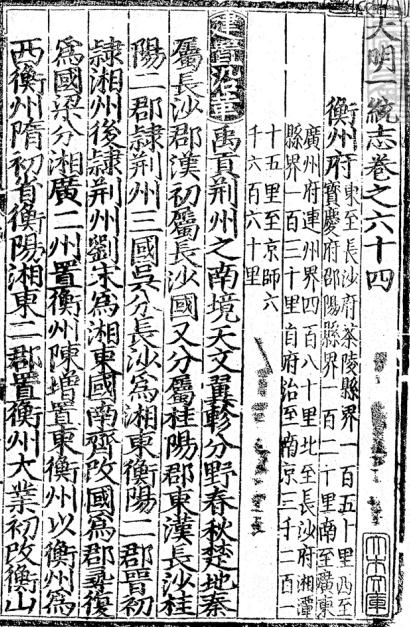 大明一統志卷之六十四
衡州府
東至長沙府茶陵縣界一百五十里西至
寶慶府邵陽縣界一百二十里南至廣東
廣州府連州界四百八十里北至長沙府湘潭
縣界一百三十里自府治至南京三千二百一
十五里至京師六
千六百六十里
建置沿革
禹貢荊州之南境天文翼軫分野春秋楚地秦
屬長沙郡漢初屬長沙國又分屬桂陽郡東漢長沙桂
陽二郡隷荊州三國吳分長沙為湘東衡陽二郡晉初
隷湘州後隷荊州劉宋為湘東國南齊改國為郡尋復
為國梁分湘廣二州置衡州陳增置東衡州以衡州為
西衡州隋初省衡陽湘東二郡置衡州大業初改衡山